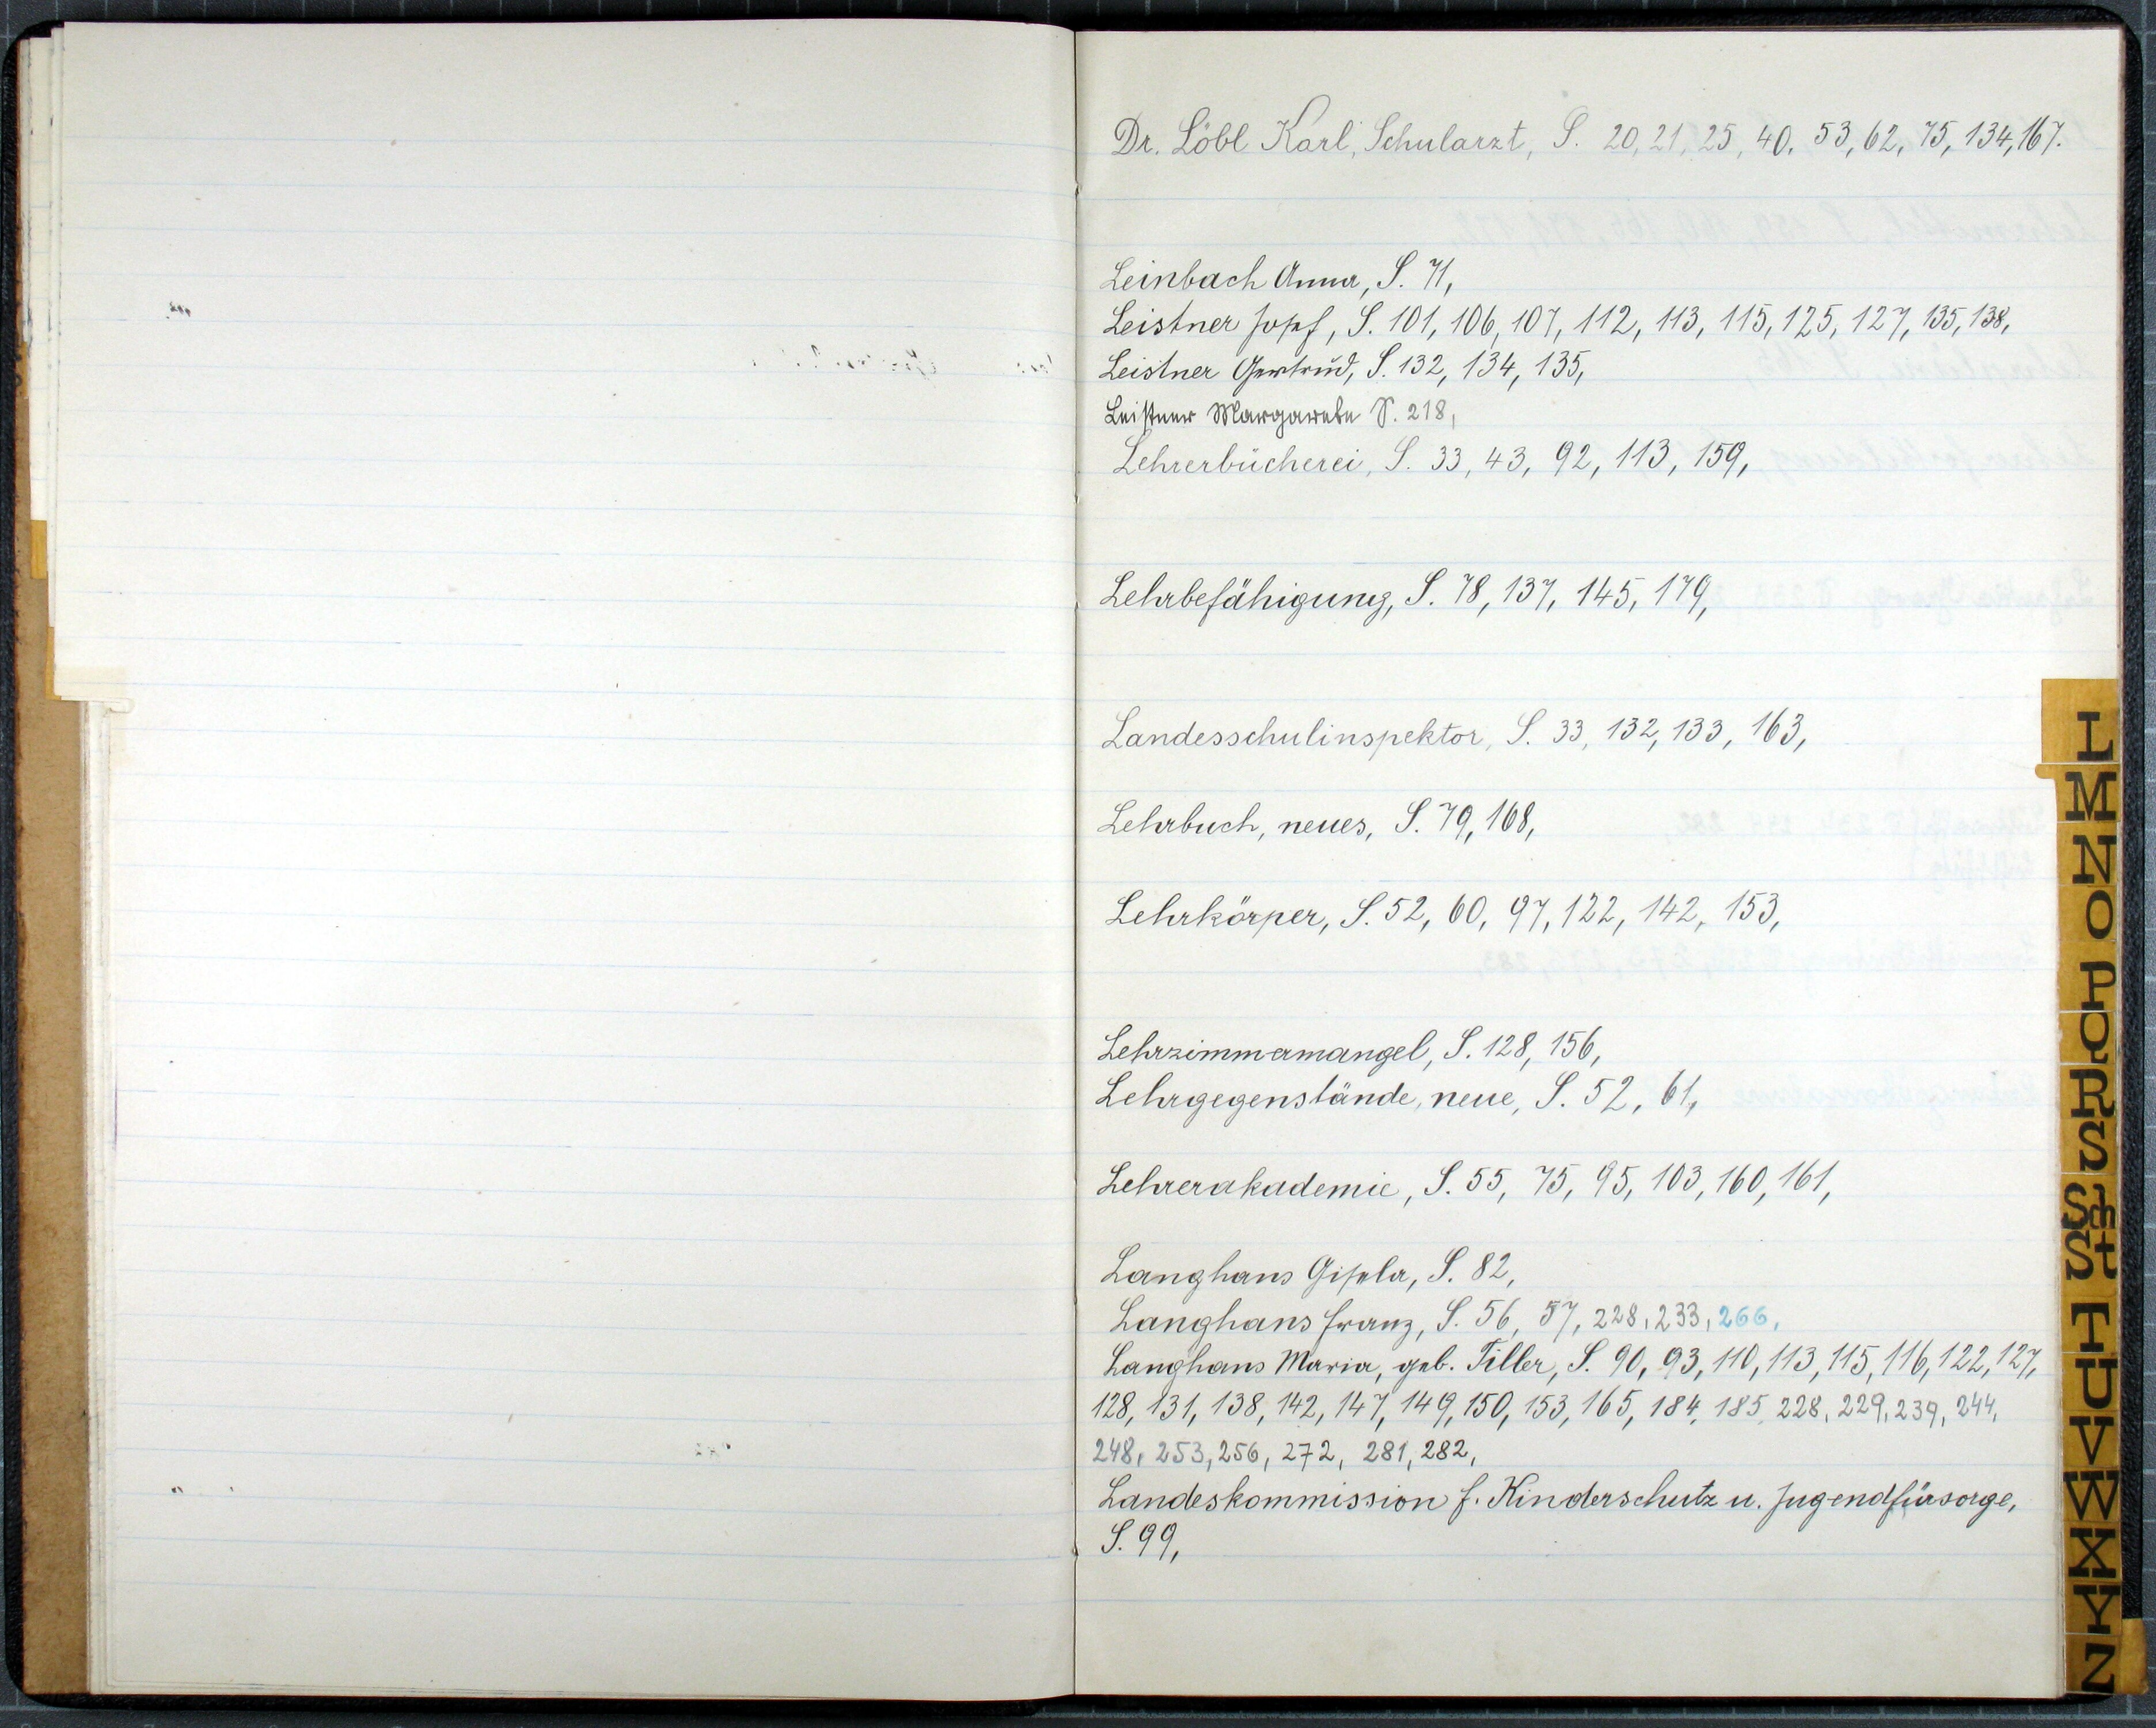 Dr. Löbl Karl, Schularzt, S. 20, 21, 25, 40, 53, 62, 75, 134, 167.
Leinbach Anna, S. 71,
Leistner Josef, S. 101, 106, 107, 112, 113, 115, 125, 127, 135, 138,
Leistner Gertrud, S. 132, 134, 135,
Leistner Margarete S. 218,
Lehrerbücherei, S. 33, 43, 92, 113, 159,
Lehrbefähigung, S. 78, 137, 145, 179,
Landesschulinspektor, S. 33, 132, 133, 163,
Lehrbuch, neues, S. 79, 168,
Lehrkörper, S. 52, 60, 97, 122, 142, 153,
Lehrzimmermangel, S. 128, 156,
Lehrgegenstände, neue, S. 52, 61,
Lehrerakademie, S. 55, 75, 95, 103, 160, 161,
Langhans Gisela, S. 82,
Langhans Franz, S. 56, 57, 228, 233, 266,
Langhans Maria, geb. Tiller, S. 90, 93, 110, 113, 115, 116, 122, 127,
128, 131, 138, 142, 147, 149, 150, 153, 165, 184, 185, 228, 229, 239, 244,
248, 253, 256, 272, 281, 282,
Landeskommission f. Kinderschutz u. Jugendfürsorge,
S. 99,
L
M
N
O
P
Q
R
S
Sch
St
T
U
V
W
X
Y
Z